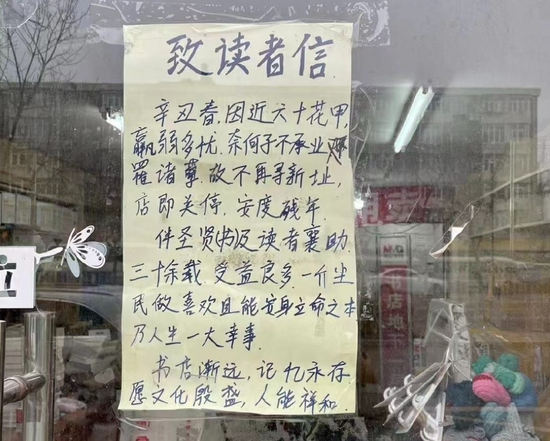 致读者信.
辛丑春,因近六十花甲,
羸弱多忧.奈何子不承业
罹诸孽.故不再寻新址,
店即关停,安度残年.
伴圣贤书及读者襄助
三十余载.受益良多.一介尘
民做喜欢且能安身立命之本
乃人生一大幸事.
书店渐远,记忆永存
愿文化殷盛,人能祥和.
M&G
书店地下